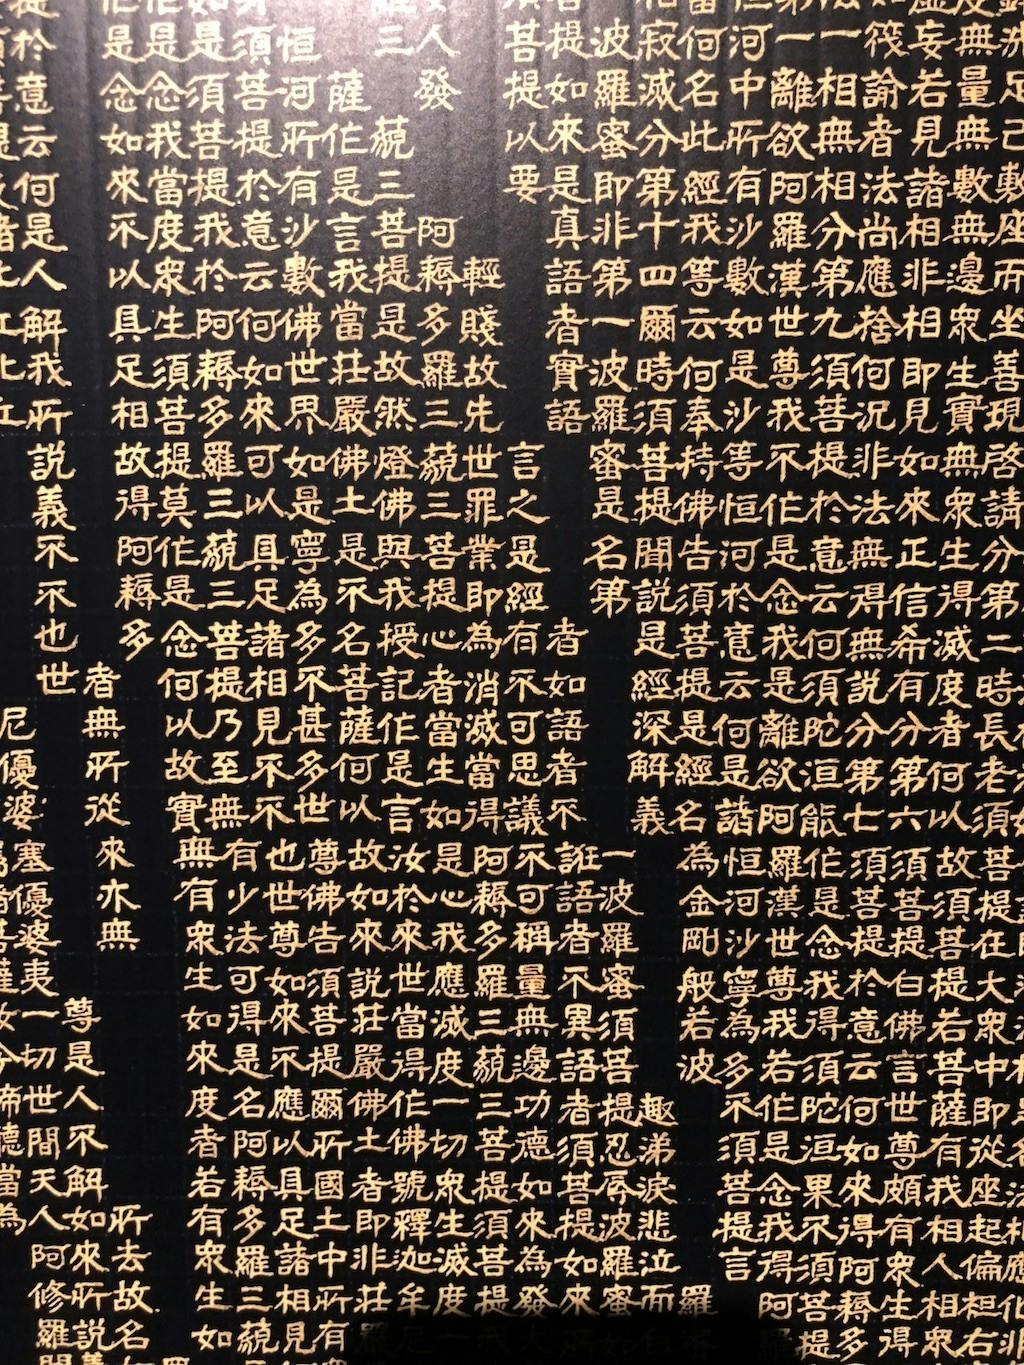 洗足已敷座而坐善現啓請分第二時長老須菩提在大眾中即從座起偏袒右
度無量無數無邊眾生實無眾生得滅度者何以故須菩提若菩薩有我相人相眾
虛妄若見諸相非相即見如來正信希有分第六須菩提白佛言世尊頗有眾生得
筏諭者法尚應捨何況非法無得無說分第七須菩提於意云何如來得阿耨多
一相無相分第九須菩提於意云何須陀洹能作是念我得須陀洹果不須菩提
第一離欲阿羅漢世尊我不作是念我是離欲阿羅漢世尊我若作是念我得阿
恒河中所有沙數如是沙等恒河於意云何是諸恒河沙寧為多不須菩提言
當何名此經我等云何奉持佛告須菩提是經名為金剛般若波羅
相寂滅分第十四爾時須菩提聞說是經深解義趣涕淚悲泣而
波羅蜜即非第一波羅蜜是名第一波羅蜜須菩提忍辱波羅蜜
菩提如來是真語者實語者如語者不誑語者不異語者須菩提如來
須菩提以要言之是經有不可思議不可稱量無邊功德如來為發
輕賤故先世罪業即為消滅當得阿耨多羅三藐三菩提須菩提
如人發阿耨多羅三藐三菩提心者當生如是心我應滅度一切眾生滅度
羅三藐三菩提是故然燈佛與我授記作是言汝於來世當得作佛號釋迦牟
薩作是言我當莊嚴佛土是不名菩薩何以故如來說莊嚴佛土者即非莊
恒河所有沙數佛世界如是寧為多不甚多世尊佛告須菩提爾所國土中所有
須菩提於意云何如來可以具足諸相見不不也世尊如來不應以具足諸相見
是須菩提我於阿耨多羅三藐三菩提乃至無有少法可得是名阿耨多羅三藐
是念我當度眾生須菩提莫作是念何以故實無有眾生如來度者若有眾生如
作是念如來不以具足相故得阿耨多
者無所從來亦無所去故名
提於意云何是人解我所說義不不也世尊是人不解如來所說
尼優婆塞優婆夷一切世間天人阿修羅